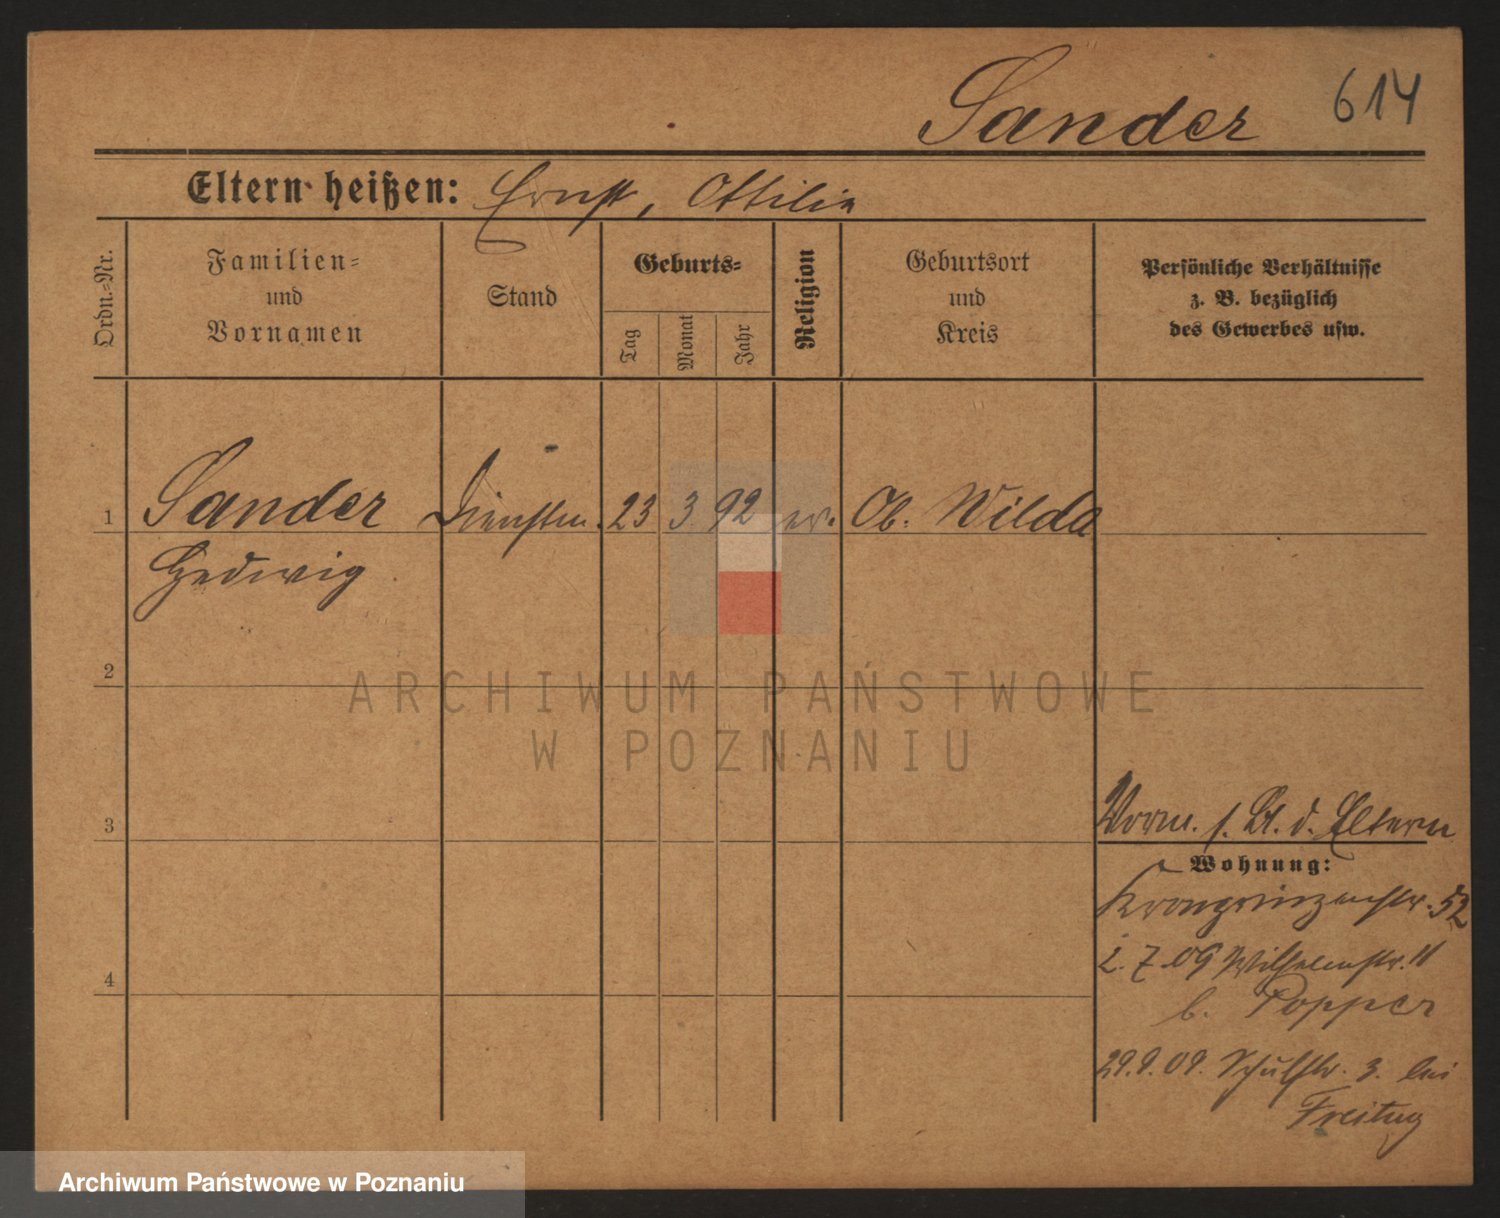 Sander 614
Eltern heißen: Ernst, Ottilie
Ordn.=Nr.
Familien=
und
Vornamen
Stand
Geburts=
Tag
Monat
Jahr
Religion
Geburtsort
und
Kreis
Persönliche Verhältnisse
z. B. bezüglich
des Gewerbes usw.
1 Sander Dienstm. 23 3 92 ev. Ob. Wilda
Hedwig
2
ARCHIWUM PAŃSTWOWE
W POZNANIU
3
Vorm. s. Bl. d. Eltern
Wohnung:
Kronprinzenstr. 52
4
2. 7. 09 Wilhelmstr. 11
b. Popper
29.9.09. Schulstr. 3. bei
Freitag
Archiwum Państwowe w Poznaniu